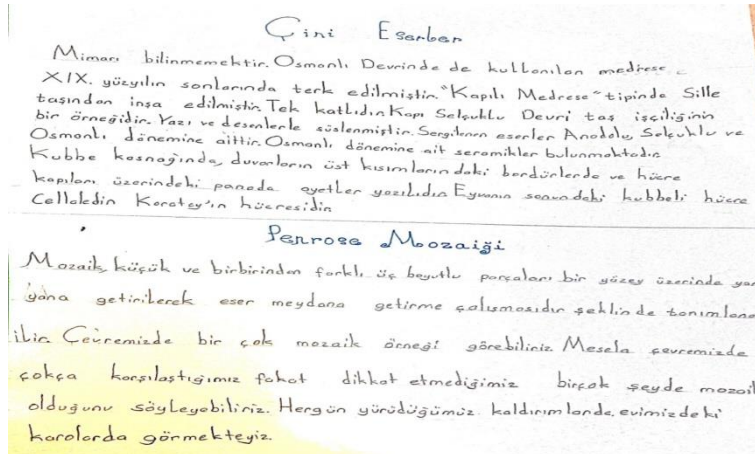 Çini Eserler
Mimarı bilinmemektir. Osmanlı Devrinde de kullanılan medrese
XIX. yüzyılın sonlarında terk edilmiştir. "Kapılı Medrese" tipinde Sille
taşından inşa edilmiştir. Tek katlıdır. Kapı Selçuklu Devri taş işçiliğinin
bir örneğidir. Yazı ve desenlerle süslenmiştir. Sergilenen eserler Anadolu, Selçuklu ve
Osmanlı dönemine aittir. Osmanlı dönemine ait seramikler bulunmaktadır.
Kubbe kasnağında, duvarların üst kısımlarındaki bordürlerde ve hücre
kapıları üzerindeki panoda ayetler yazılıdır. Eyvanın sonundaki kubbeli hücre
Celleledin Karatay'ın hücresidir.
Penrose Mozaiği
Mozaik, küçük ve birbirinden farklı üç boyutlu parçaları bir yüzey üzerinde yan
yana getirilerek eser meydana getirme çalışmasıdır şeklinde tanımlana
ilir. Çevremizde bir çok mozaik örneği görebiliriz. Mesela çevremizde
çokça karşılaştığımız fakat dikkat etmediğimiz birçok şeyde mozaik
olduğunu söyleyebiliriz. Hergün yürüdüğümüz kaldırımlarda, evimizdeki
karolarda görmekteyiz.